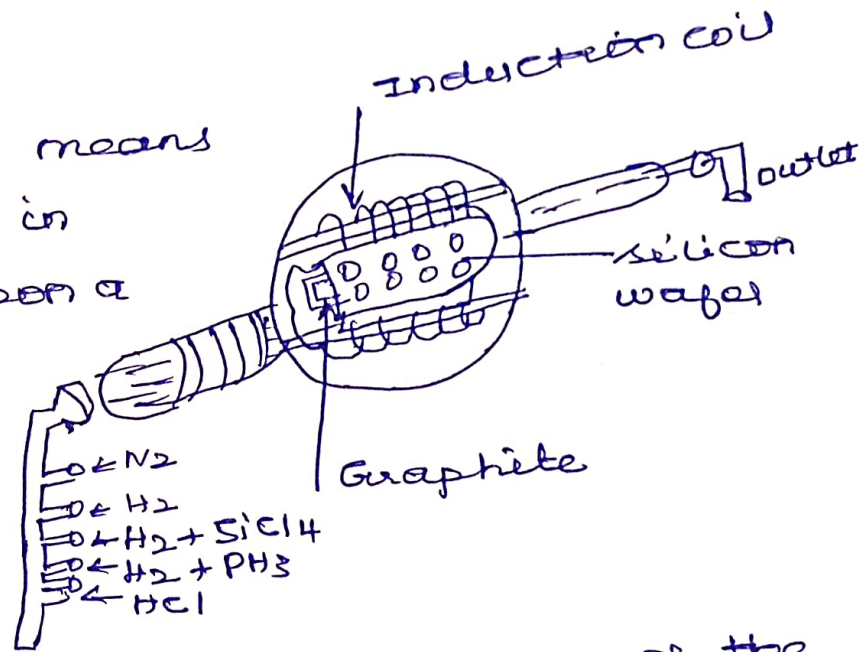 Induction coil
means
in
outlet
silicon
wafer
on a
Graphite
N2
H2
H2 + SiCl4
H2 + PH3
HCl
of the